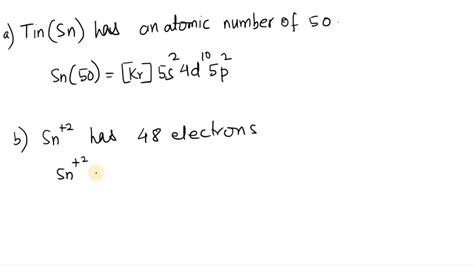 a) Tin(Sn) has an atomic number of 50.
Sn(50) = [Kr] 5s² 4d¹⁰ 5p²
b) Sn⁺² has 48 electrons
Sn⁺²